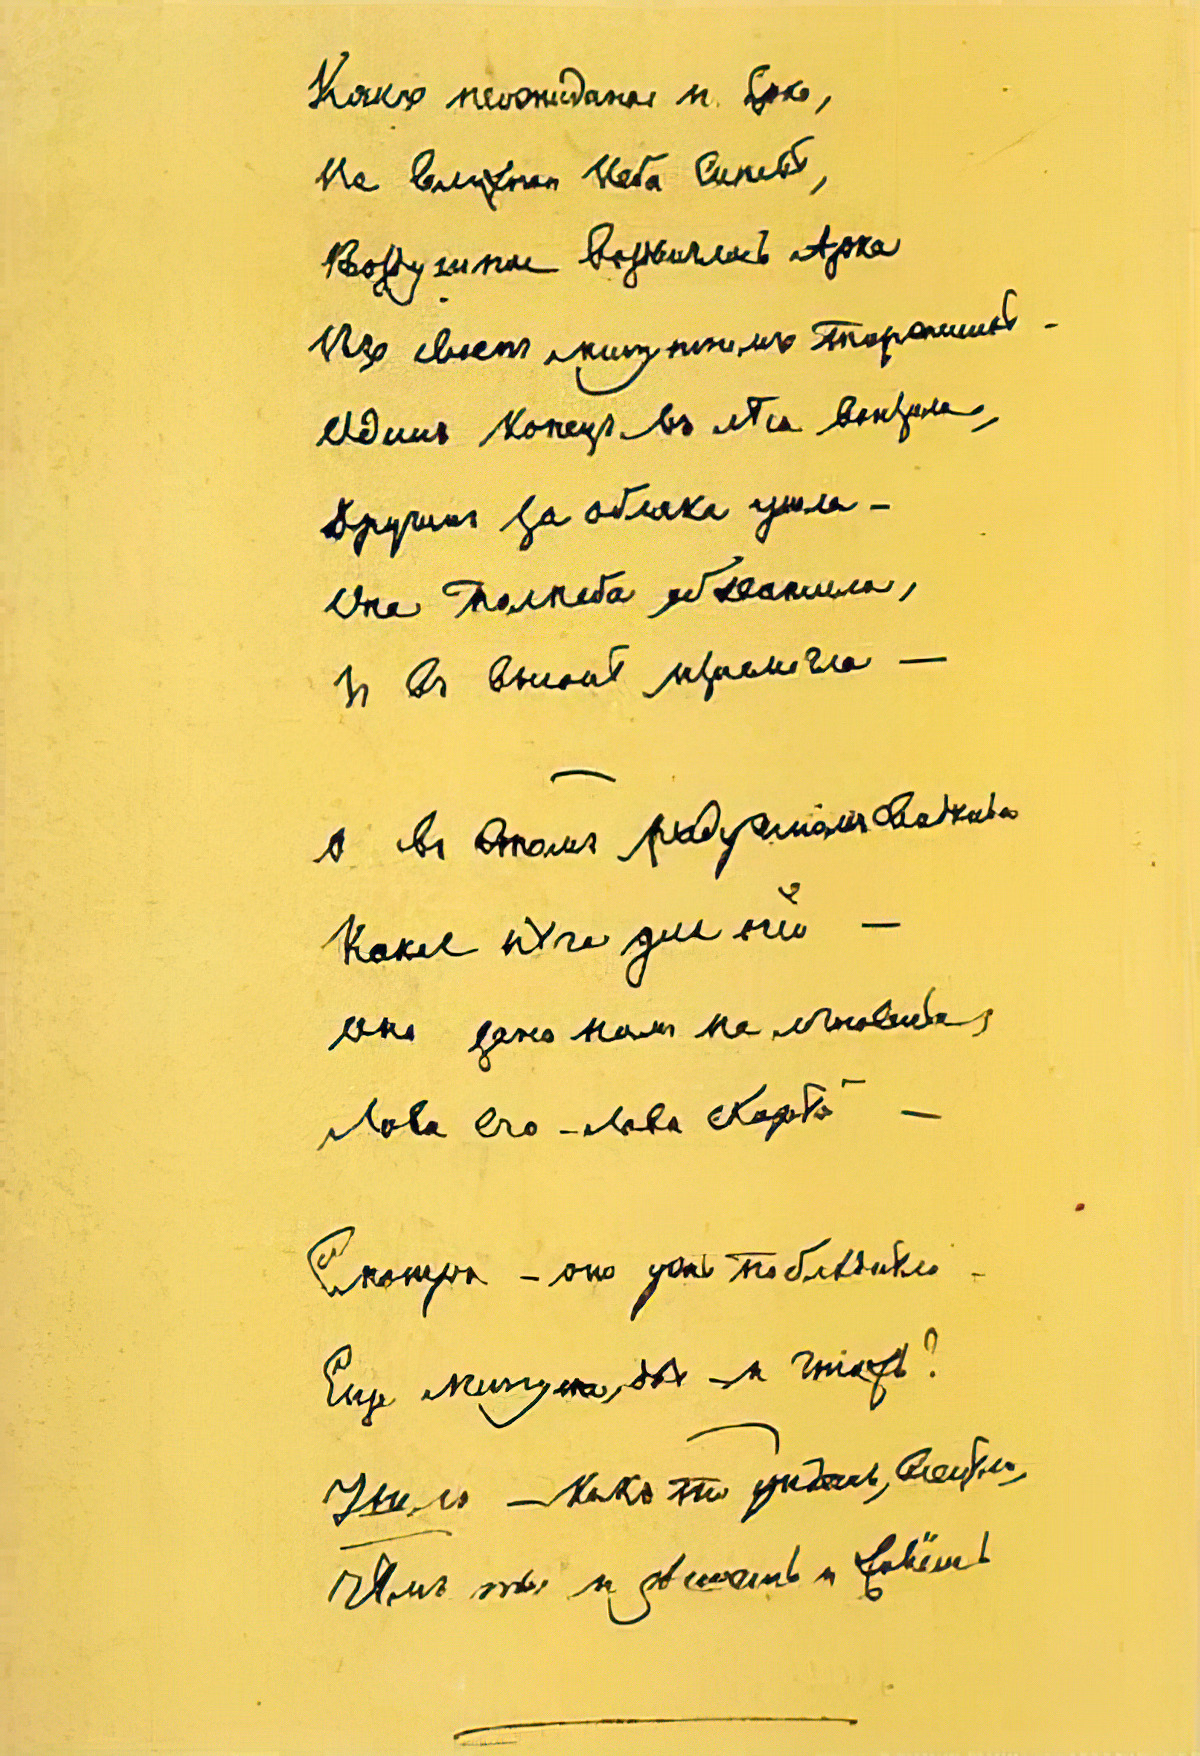 Какъ неожиданно и ярко,
На влажной неба синевѣ,
Воздушная воздвиглась Арка
Въ своемъ минутномъ торжествѣ –
Одинъ конецъ въ лѣса вонзила,
Другимъ за облака ушла –
Она полнеба обхватила,
И въ высотѣ изнемогла —
О въ этомъ радужномъ видѣньѣ
Какая нѣга для очей —
Оно дано намъ на мгновенье,
Лови его – лови скорѣй —
Смотри – оно ужь поблѣднѣло –
Еще минута, двѣ – и чтожь?
Ушло – какъ то уйдетъ, всецѣло,
Чѣмъ ты и дышешь и живёшь